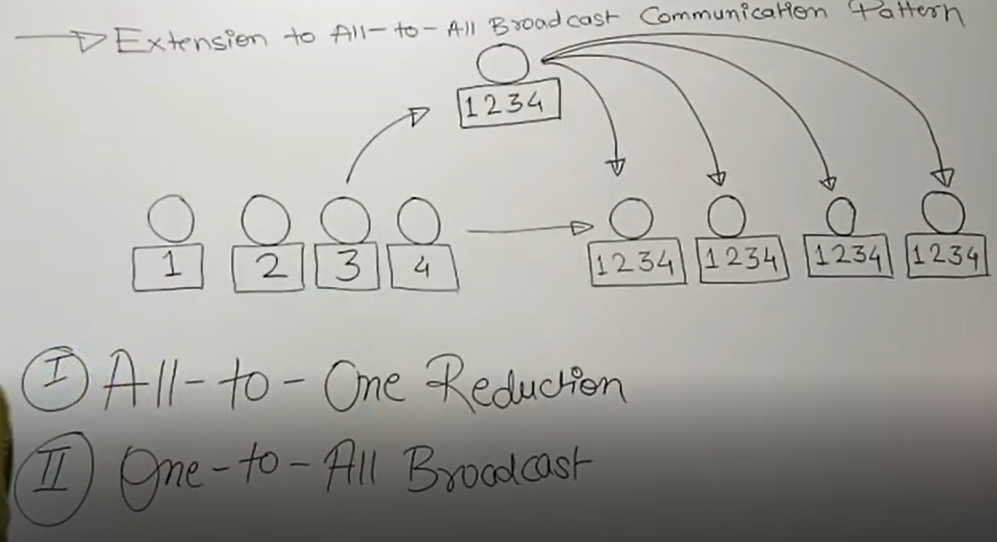 Extension to All-to-All Broadcast Communication Pattern
1234
1 2 3 4 1234 1234 1234 1234
I All-to-One Reduction
II One-to-All Broadcast